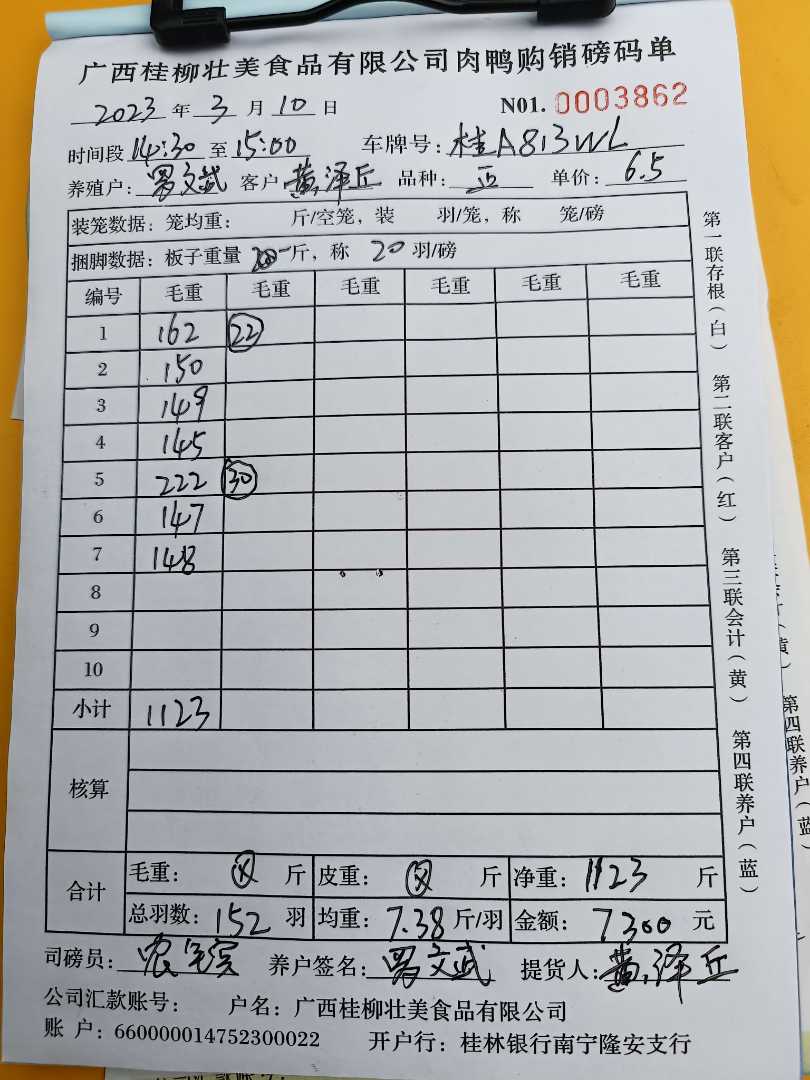 广西桂柳壮美食品有限公司肉鸭购销磅码单
2023 年 3 月 10 日 N01. 0003862
时间段 14:30 至 15:00 车牌号: 桂A813WL
养殖户: 罗文武 客户 黄泽丘 品种: 单价: 6.5
装笼数据: 笼均重: 斤/空笼, 装 羽/笼, 称 笼/磅
捆脚数据: 板子重量 斤, 称 20 羽/磅
编号 毛重 毛重 毛重 毛重 毛重 毛重
1 162 22
2 150
3 149
4 145
5 222 30
6 147
7 148
8
9
10
小计 1123
核算
合计
毛重: 斤 皮重: 斤 净重: 1123 斤
总羽数: 152 羽 均重: 7.38 斤/羽 金额: 7300 元
司磅员: 养户签名: 罗文武 提货人: 黄泽丘
公司汇款账号: 户名: 广西桂柳壮美食品有限公司
账 户: 660000014752300022 开户行: 桂林银行南宁隆安支行
第一联存根(白) 第二联客户(红) 第三联会计(黄) 第四联养户(蓝)
第四联养户(蓝